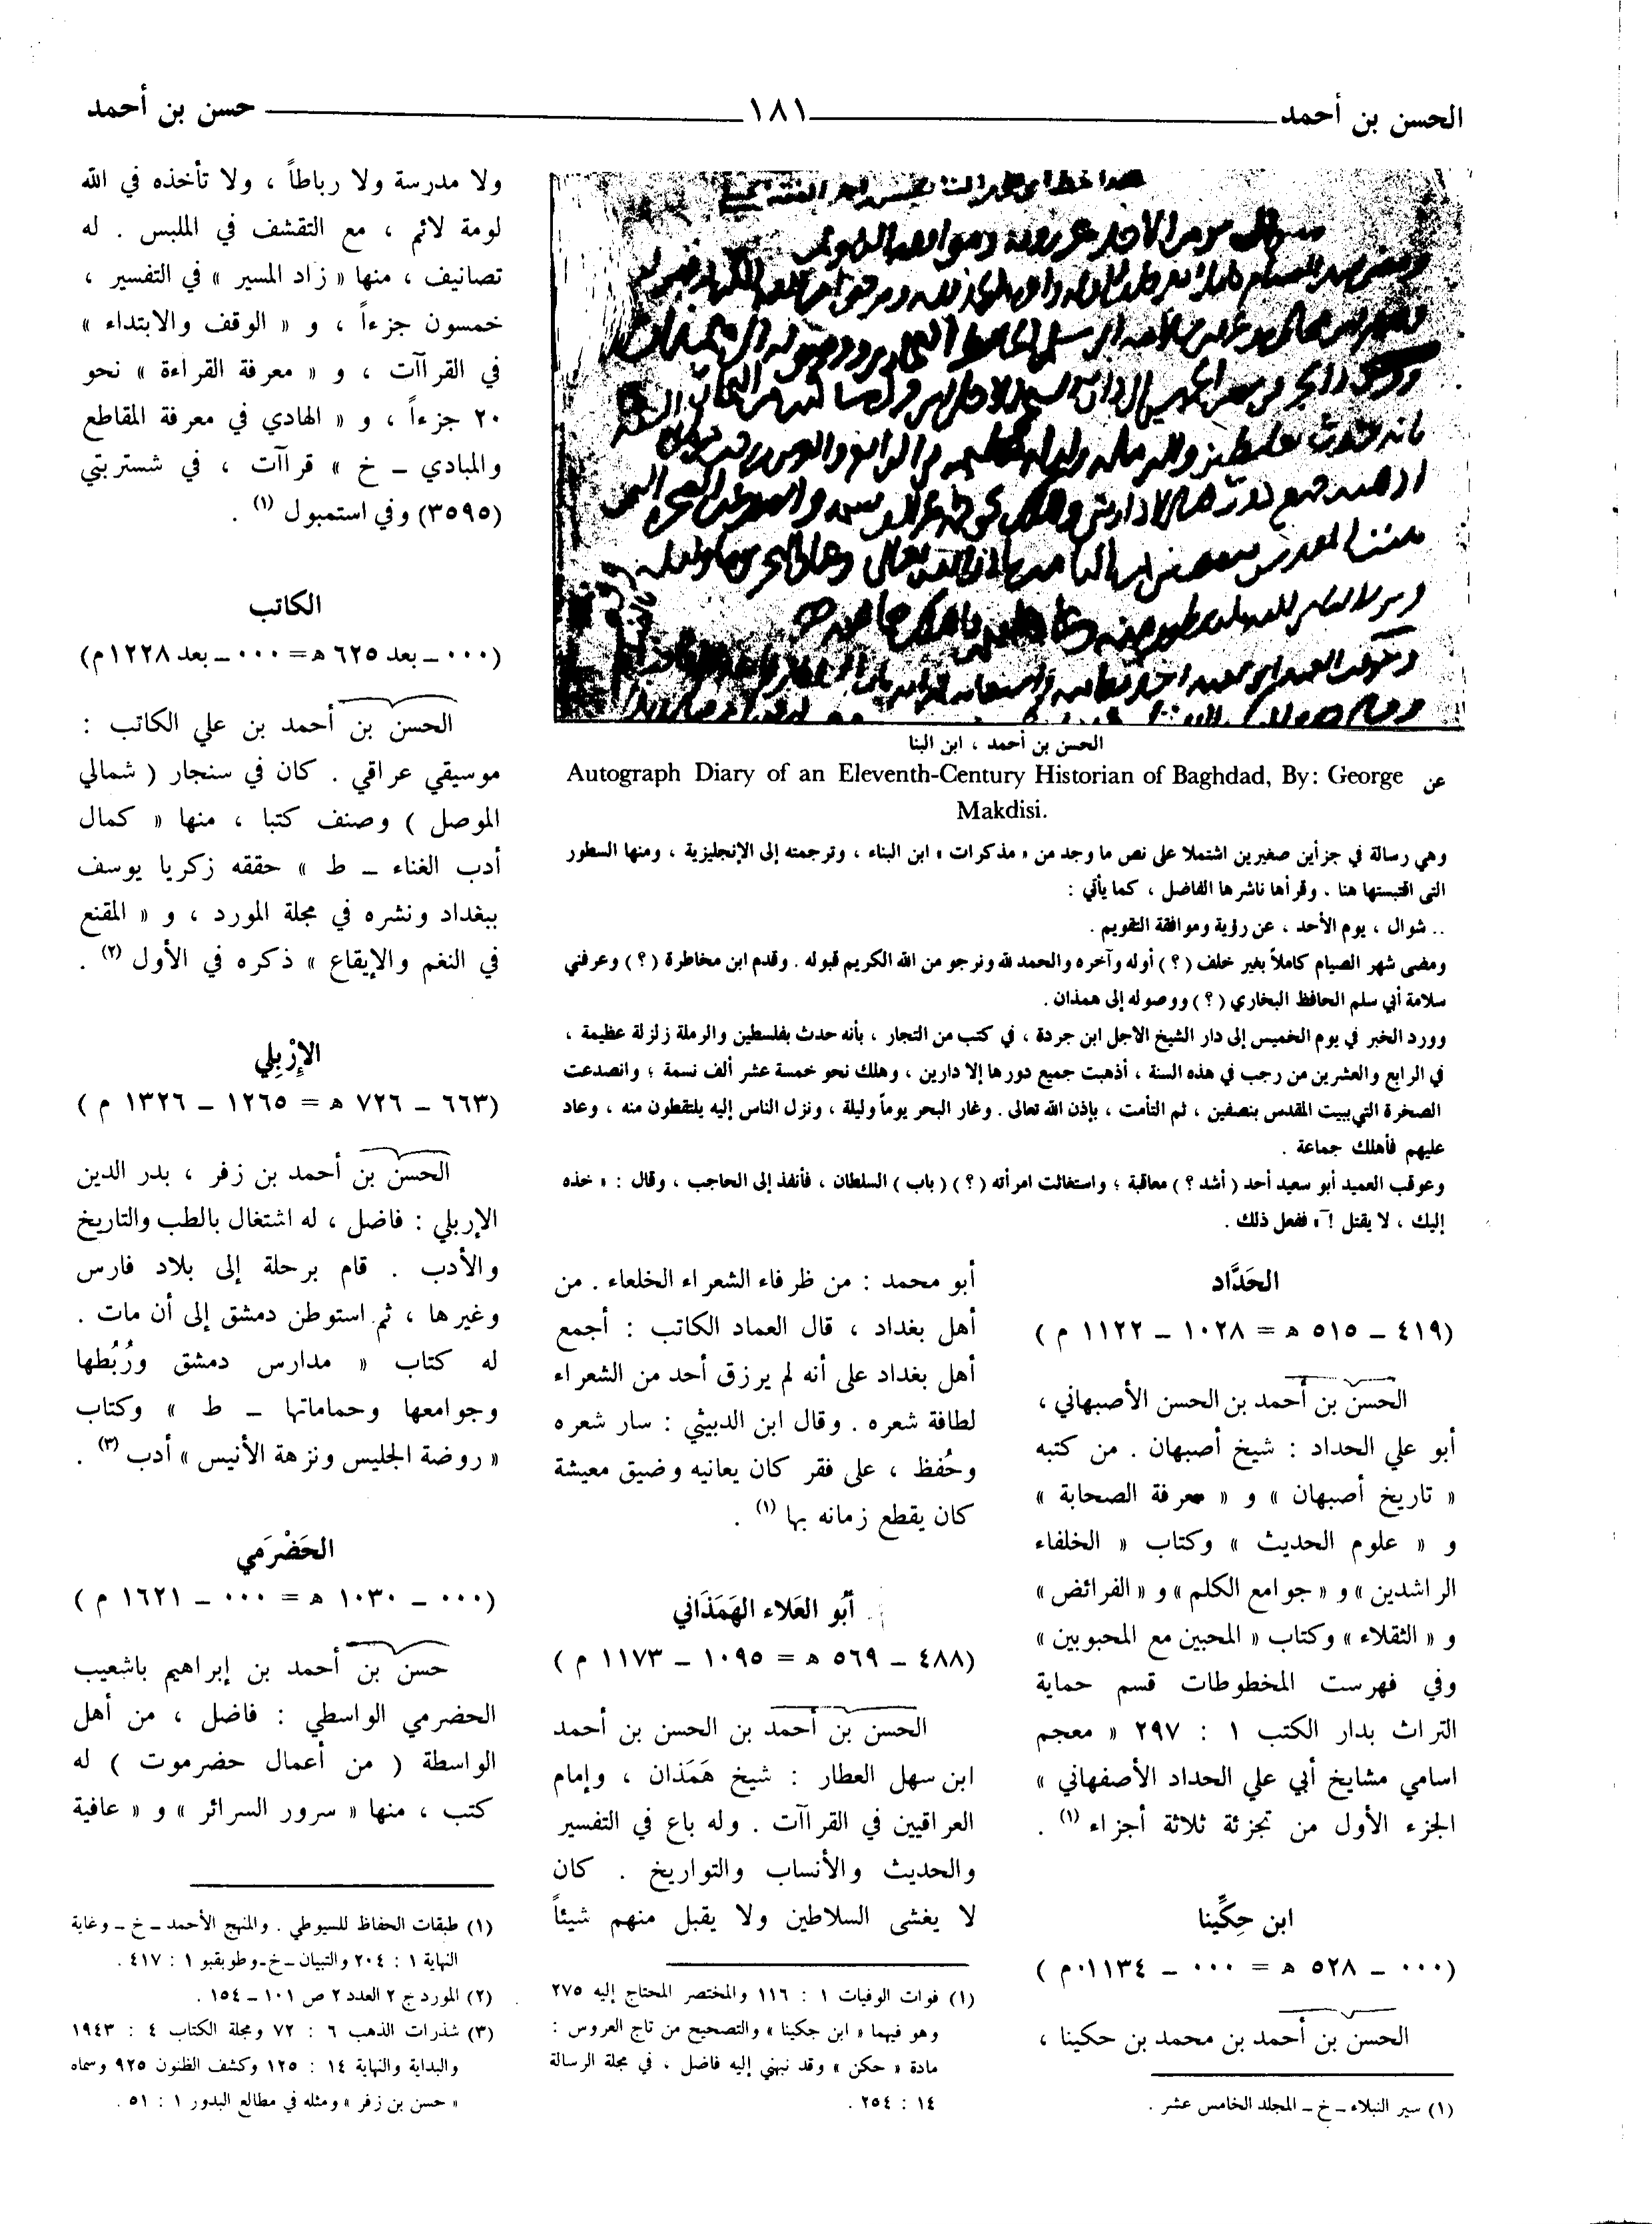 الحسن بن أحمد ــــ ١٨١ ــــ حسن بن أحمد
الحسن بن أحمد ، ابن البنا
عن Autograph Diary of an Eleventh-Century Historian of Baghdad, By: George
Makdisi.
وهي رسالة في جزأين صغيرين اشتملا على نص ما وجد من « مذكرات » ابن البناء ، وترجمته إلى الإنجليزية ، ومنها السطور
التى اقتبستها هنا . وقرأها ناشرها الفاضل ، كما يأتي :
.. شوال ، يوم الأحد ، عن رؤية وموافقة التقويم .
ومضى شهر الصيام كاملاً بغير خلف ( ؟ ) أوله وآخره والحمد لله ونرجو من الله الكريم قبوله . وقدم ابن مخاطرة ( ؟ ) وعرفني
سلامة أبي سلم الحافظ البخاري ( ؟ ) ووصوله إلى همذان .
وورد الخبر في يوم الخميس إلى دار الشيخ الاجل ابن جردة ، في كتب من التجار ، بأنه حدث بفلسطين والرملة زلزلة عظيمة ،
في الرابع والعشرين من رجب في هذه السنة ، أذهبت جميع دورها إلا دارين ، وهلك نحو خمسة عشر ألف نسمة ؛ وانصدعت
الصخرة التي ببيت المقدس بنصفين ، ثم التأمت ، بإذن الله تعالى . وغار البحر يوماً وليلة ، ونزل الناس إليه يلتقطون منه ، وعاد
عليهم فأهلك جماعة .
وعوقب العميد أبو سعيد أحد ( أشد ؟ ) معاقبة ؛ واستغاثت امرأته ( ؟ ) ( باب ) السلطان ، فأنفذ إلى الحاجب ، وقال : « خذه
إليك ، لا يقتل ! » ففعل ذلك .
الحَدَّاد
(٤١٩ ــ ٥١٥ هـ = ١٠٢٨ ــ ١١٢٢ م )
الحسن بن أحمد بن الحسن الأصبهاني ،
أبو علي الحداد : شيخ أصبهان . من كتبه
« تاريخ أصبهان » و « معرفة الصحابة »
و « علوم الحديث » وكتاب « الخلفاء
الراشدين » و « جوامع الكلم » و « الفرائض »
و « الثقلاء » وكتاب « المحبين مع المحبوبين »
وفي فهرست المخطوطات قسم حماية
التراث بدار الكتب ١ : ٢٩٧ « معجم
اسامي مشايخ أبي علي الحداد الأصفهاني »
الجزء الأول من تجزئة ثلاثة أجزاء (١) .
ابن حِكِّينا
(٠٠٠ ــ ٥٢٨ هـ = ٠٠٠ ــ ١١٣٤م )
الحسن بن أحمد بن محمد بن حكينا ،
(١) سير النبلاء ــ خ ــ المجلد الخامس عشر .
أبو محمد : من ظرفاء الشعراء الخلعاء . من
أهل بغداد ، قال العماد الكاتب : أجمع
أهل بغداد على أنه لم يرزق أحد من الشعراء
لطافة شعره . وقال ابن الدبيثي : سار شعره
وحُفظ ، على فقر كان يعانيه وضيق معيشة
كان يقطع زمانه بها (١) .
أَبُو العَلاء الهَمَذَاني
(٤٨٨ ــ ٥٦٩ هـ = ١٠٩٥ ــ ١١٧٣ م )
الحسن بن أحمد بن الحسن بن أحمد
ابن سهل العطار : شيخ هَمَذان ، وإمام
العراقيين في القراآت . وله باع في التفسير
والحديث والأنساب والتواريخ . كان
لا يغشى السلاطين ولا يقبل منهم شيئاً
(١) فوات الوفيات ١ : ١١٦ والمختصر المحتاج إليه ٢٧٥
وهو فيهما « ابن جكينا » والتصحيح من تاج العروس :
مادة « حكن » وقد نبهني إليه فاضل ، في مجلة الرسالة
١٤ : ٢٥٤ .
ولا مدرسة ولا رباطاً ، ولا تأخذه في الله
لومة لائم ، مع التقشف في الملبس . له
تصانيف ، منها « زاد المسير » في التفسير ،
خمسون جزءاً ، و « الوقف والابتداء »
في القراآت ، و « معرفة القراءة » نحو
٢٠ جزءاً ، و « الهادي في معرفة المقاطع
والمبادي ــ خ » قراآت ، في شستربتي
(٣٥٩٥) وفي استمبول (١) .
الكاتب
(٠٠٠ ــ بعد ٦٢٥ هـ = ٠٠٠ ــ بعد ١٢٢٨م)
الحسن بن أحمد بن علي الكاتب :
موسيقي عراقي . كان في سنجار ( شمالي
الموصل ) وصنف كتبا ، منها « كمال
أدب الغناء ــ ط » حققه زكريا يوسف
ببغداد ونشره في مجلة المورد ، و « المقنع
في النغم والإيقاع » ذكره في الأول (٢) .
الإرْبِلي
(٦٦٣ ــ ٧٢٦ هـ = ١٢٦٥ ــ ١٣٢٦ م )
الحسن بن أحمد بن زفر ، بدر الدين
الإربلي : فاضل ، له اشتغال بالطب والتاريخ
والأدب . قام برحلة إلى بلاد فارس
وغيرها ، ثم استوطن دمشق إلى أن مات .
له كتاب « مدارس دمشق ورُبُطها
وجوامعها وحماماتها ــ ط » وكتاب
« روضة الجليس ونزهة الأنيس » أدب (٣) .
الحَضْرَمي
(٠٠٠ ــ ١٠٣٠ هـ = ٠٠٠ ــ ١٦٢١ م )
حسن بن أحمد بن إبراهيم باشعيب
الحضرمي الواسطي : فاضل ، من أهل
الواسطة ( من أعمال حضرموت ) له
كتب ، منها « سرور السرائر » و « عافية
(١) طبقات الحفاظ للسيوطي . والمنهج الأحمد ــ خ ــ وغاية
النهاية ١ : ٢٠٤ والتبيان ــ خ ــ وطوبقبو ١ : ٤١٧ .
(٢) المورد ج ٢ العدد ٢ ص ١٠١ ــ ١٥٤ .
(٣) شذرات الذهب ٦ : ٧٢ ومجلة الكتاب ٤ : ١٩٤٣
والبداية والنهاية ١٤ : ١٢٥ وكشف الظنون ٩٢٥ وسماه
« حسن بن زفر » ومثله في مطالع البدور ١ : ٥١ .